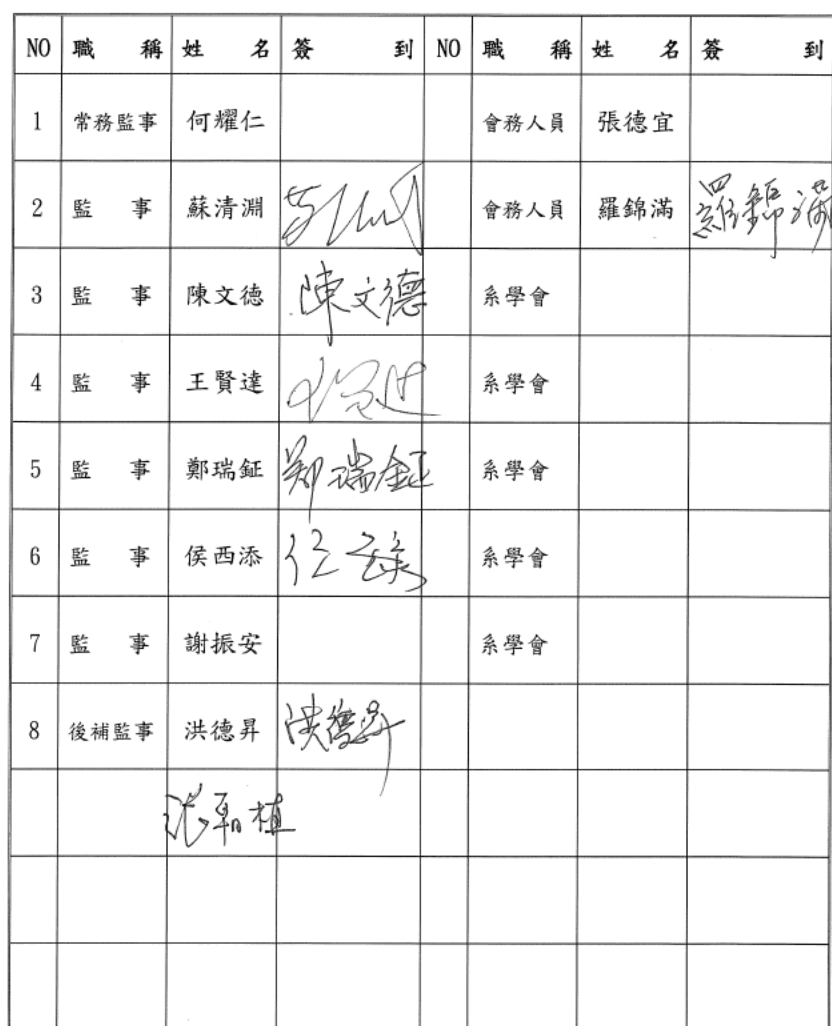 NO 職稱 姓名 簽到 NO 職稱 姓名 簽到
1 常務監事 何耀仁 會務人員 張德宜
2 監事 蘇清淵 會務人員 羅錦滿 羅錦滿
3 監事 陳文德 陳文德 系學會
4 監事 王賢達 系學會
5 監事 鄭瑞鉦 郑瑞鉦 系學會
6 監事 侯西添 系學會
7 監事 謝振安 系學會
8 後補監事 洪德昇 洪德昇